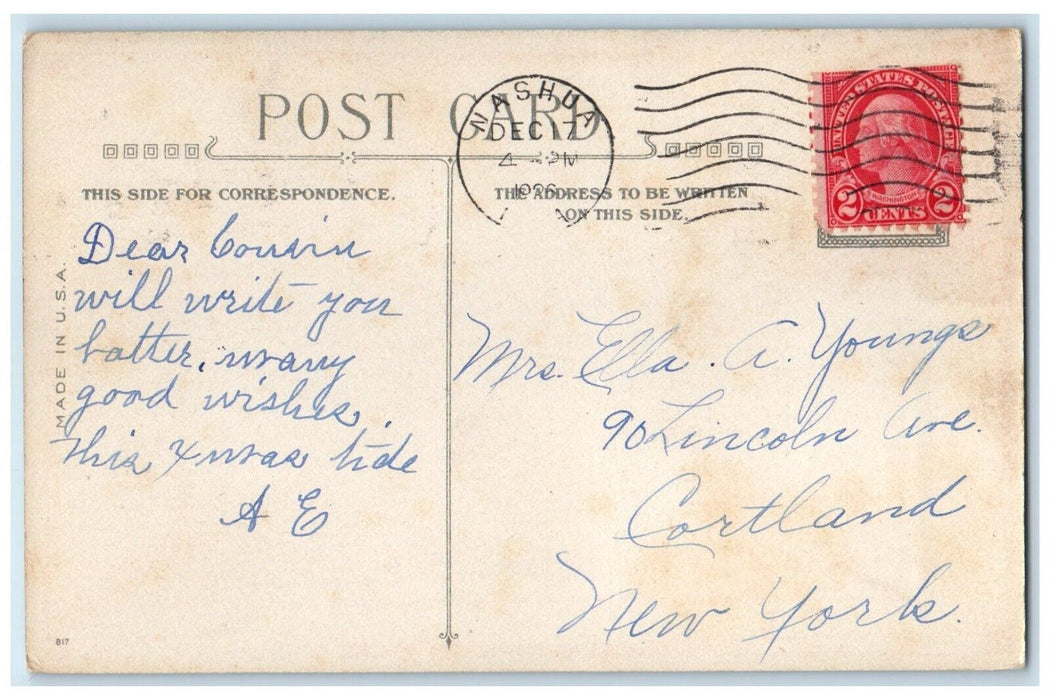 POST CARD
NASHUA
DEC 17
4 - PM
1926
UNITED STATES POSTAGE
WASHINGTON
2 CENTS 2
THIS SIDE FOR CORRESPONDENCE.
THE ADDRESS TO BE WRITTEN
ON THIS SIDE.
MADE IN U.S.A.
Dear Cousin
will write you
latter. many
good wishes.
this Xmas tide
A E
Mrs. Ella. A. Youngs
90 Lincoln Ave.
Cortland
New York.
817